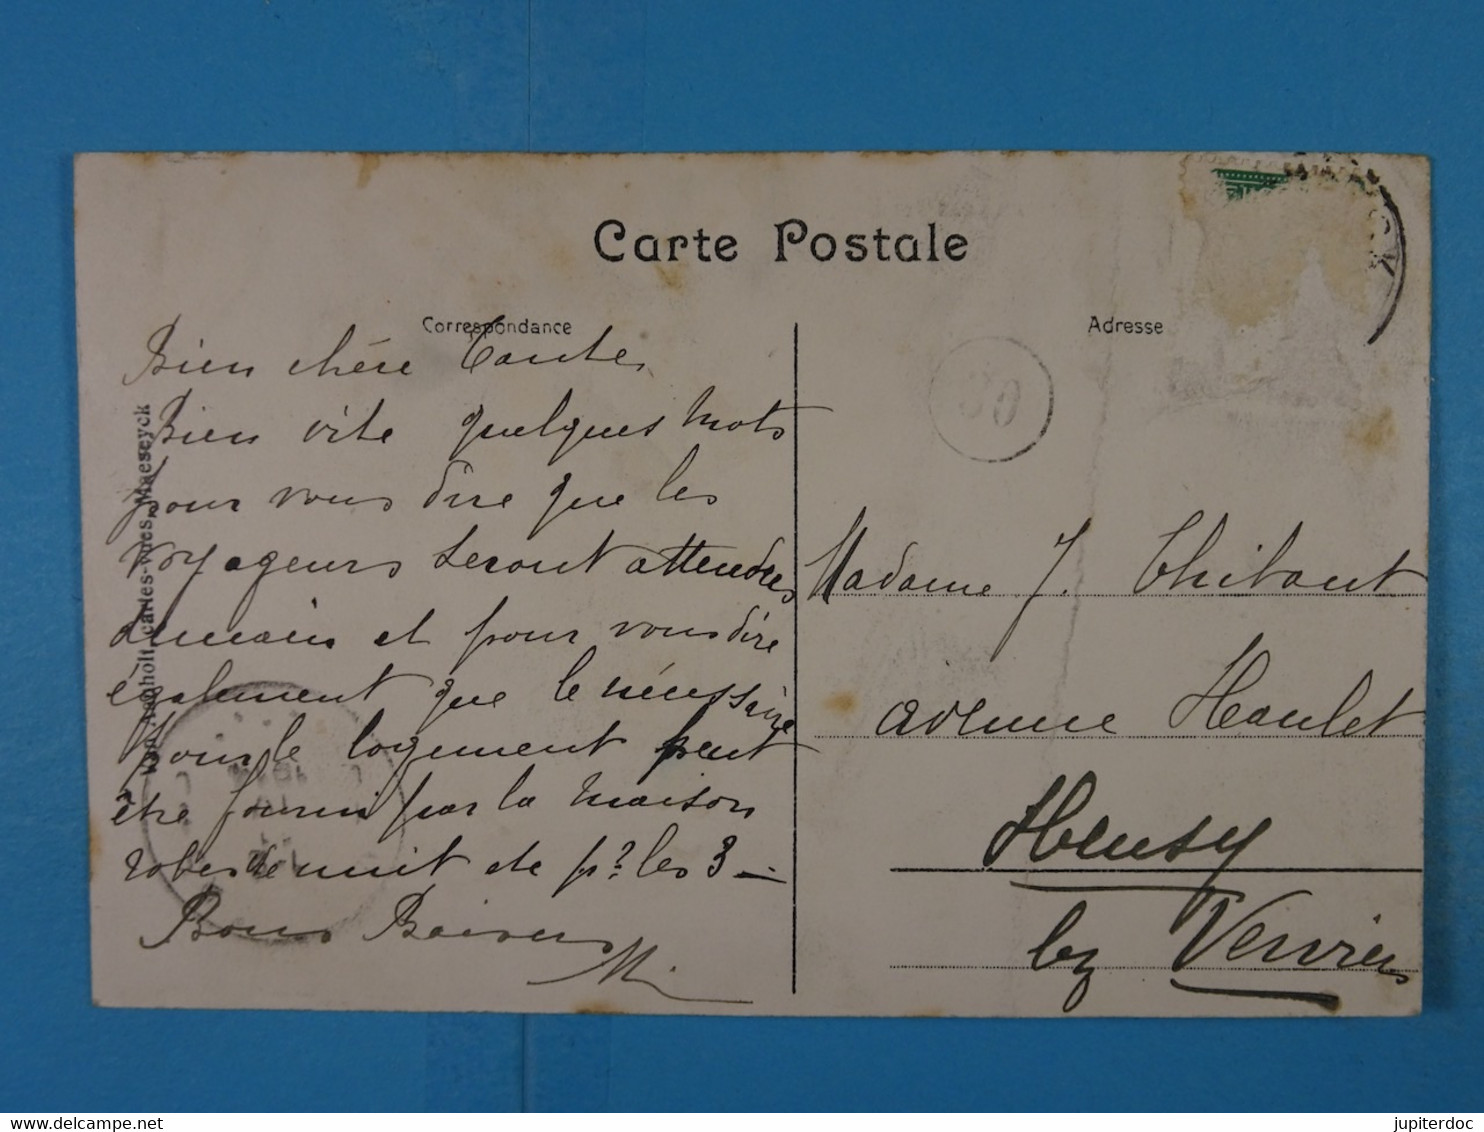 Carte Postale
Correspondance
Adresse
Bien chère Tante,
Bien vite quelques mots
pour vous dire que les
voyageurs seront attendus
demain et pour vous dire
également que le nécessaire
pour le logement peut
être fourni par la maison
robes de nuit etc pr les 3 —
Bons Baisers
M.
cartes-vues, Maeseyck
30
Madame J. Thibaut
avenue Haulet
Heusy
lez Verviers
delcampe.net
jupiterdoc